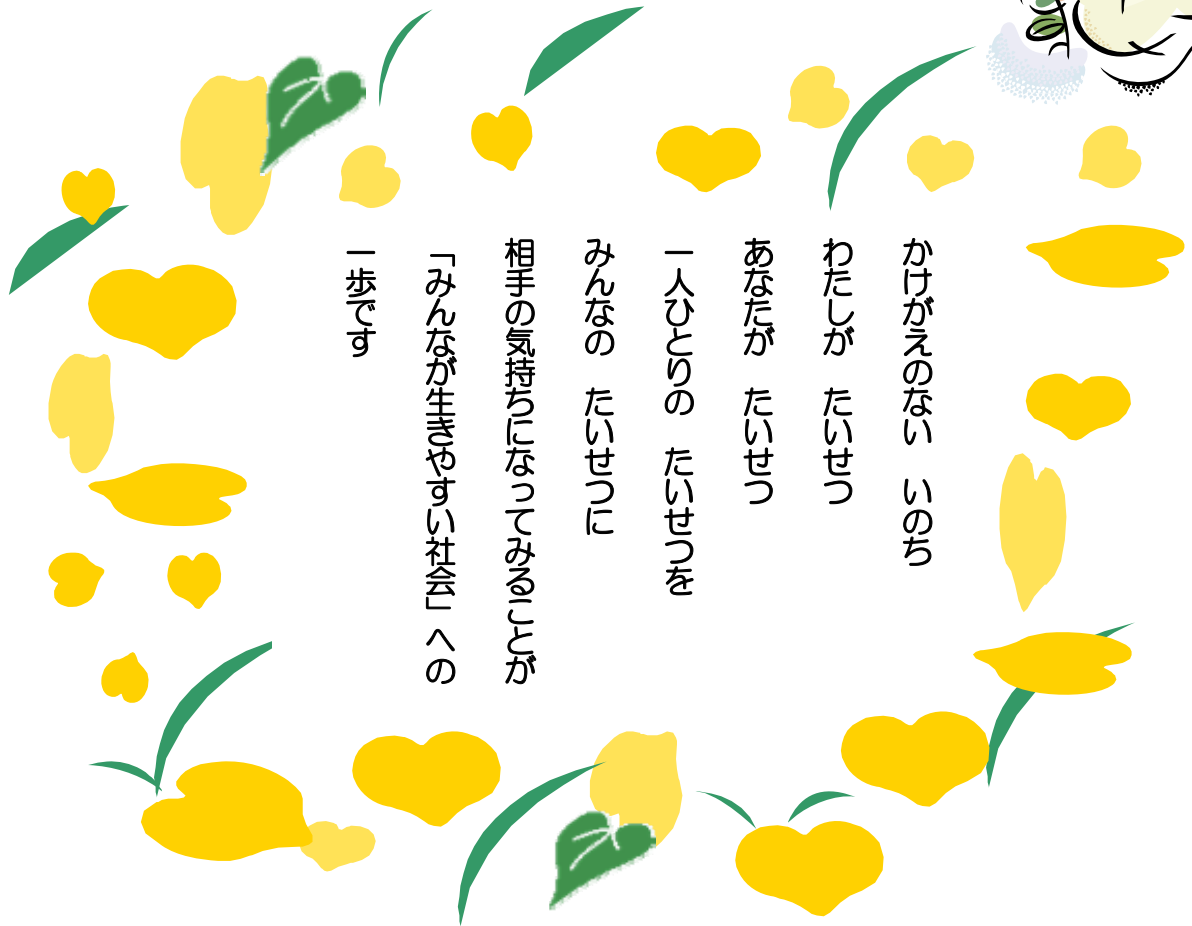 かけがえのない　いのち
わたしが　たいせつ
あなたが　たいせつ
一人ひとりの　たいせつを
みんなの　たいせつに
相手の気持ちになってみることが
「みんなが生きやすい社会」への
一歩です